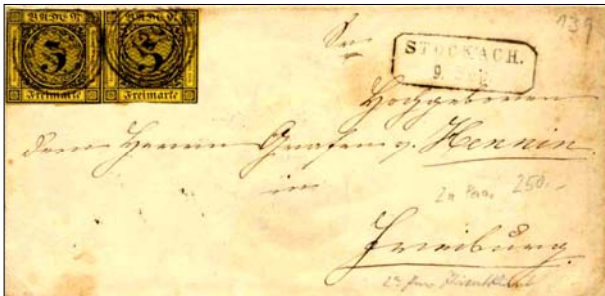 BADEN BADEN
3 3
Freimarke Freimarke
139
STOCKACH.
9.
Hochgeboren
dem Herrn Grafen v. Hennin
in
250.-
Freiburg.